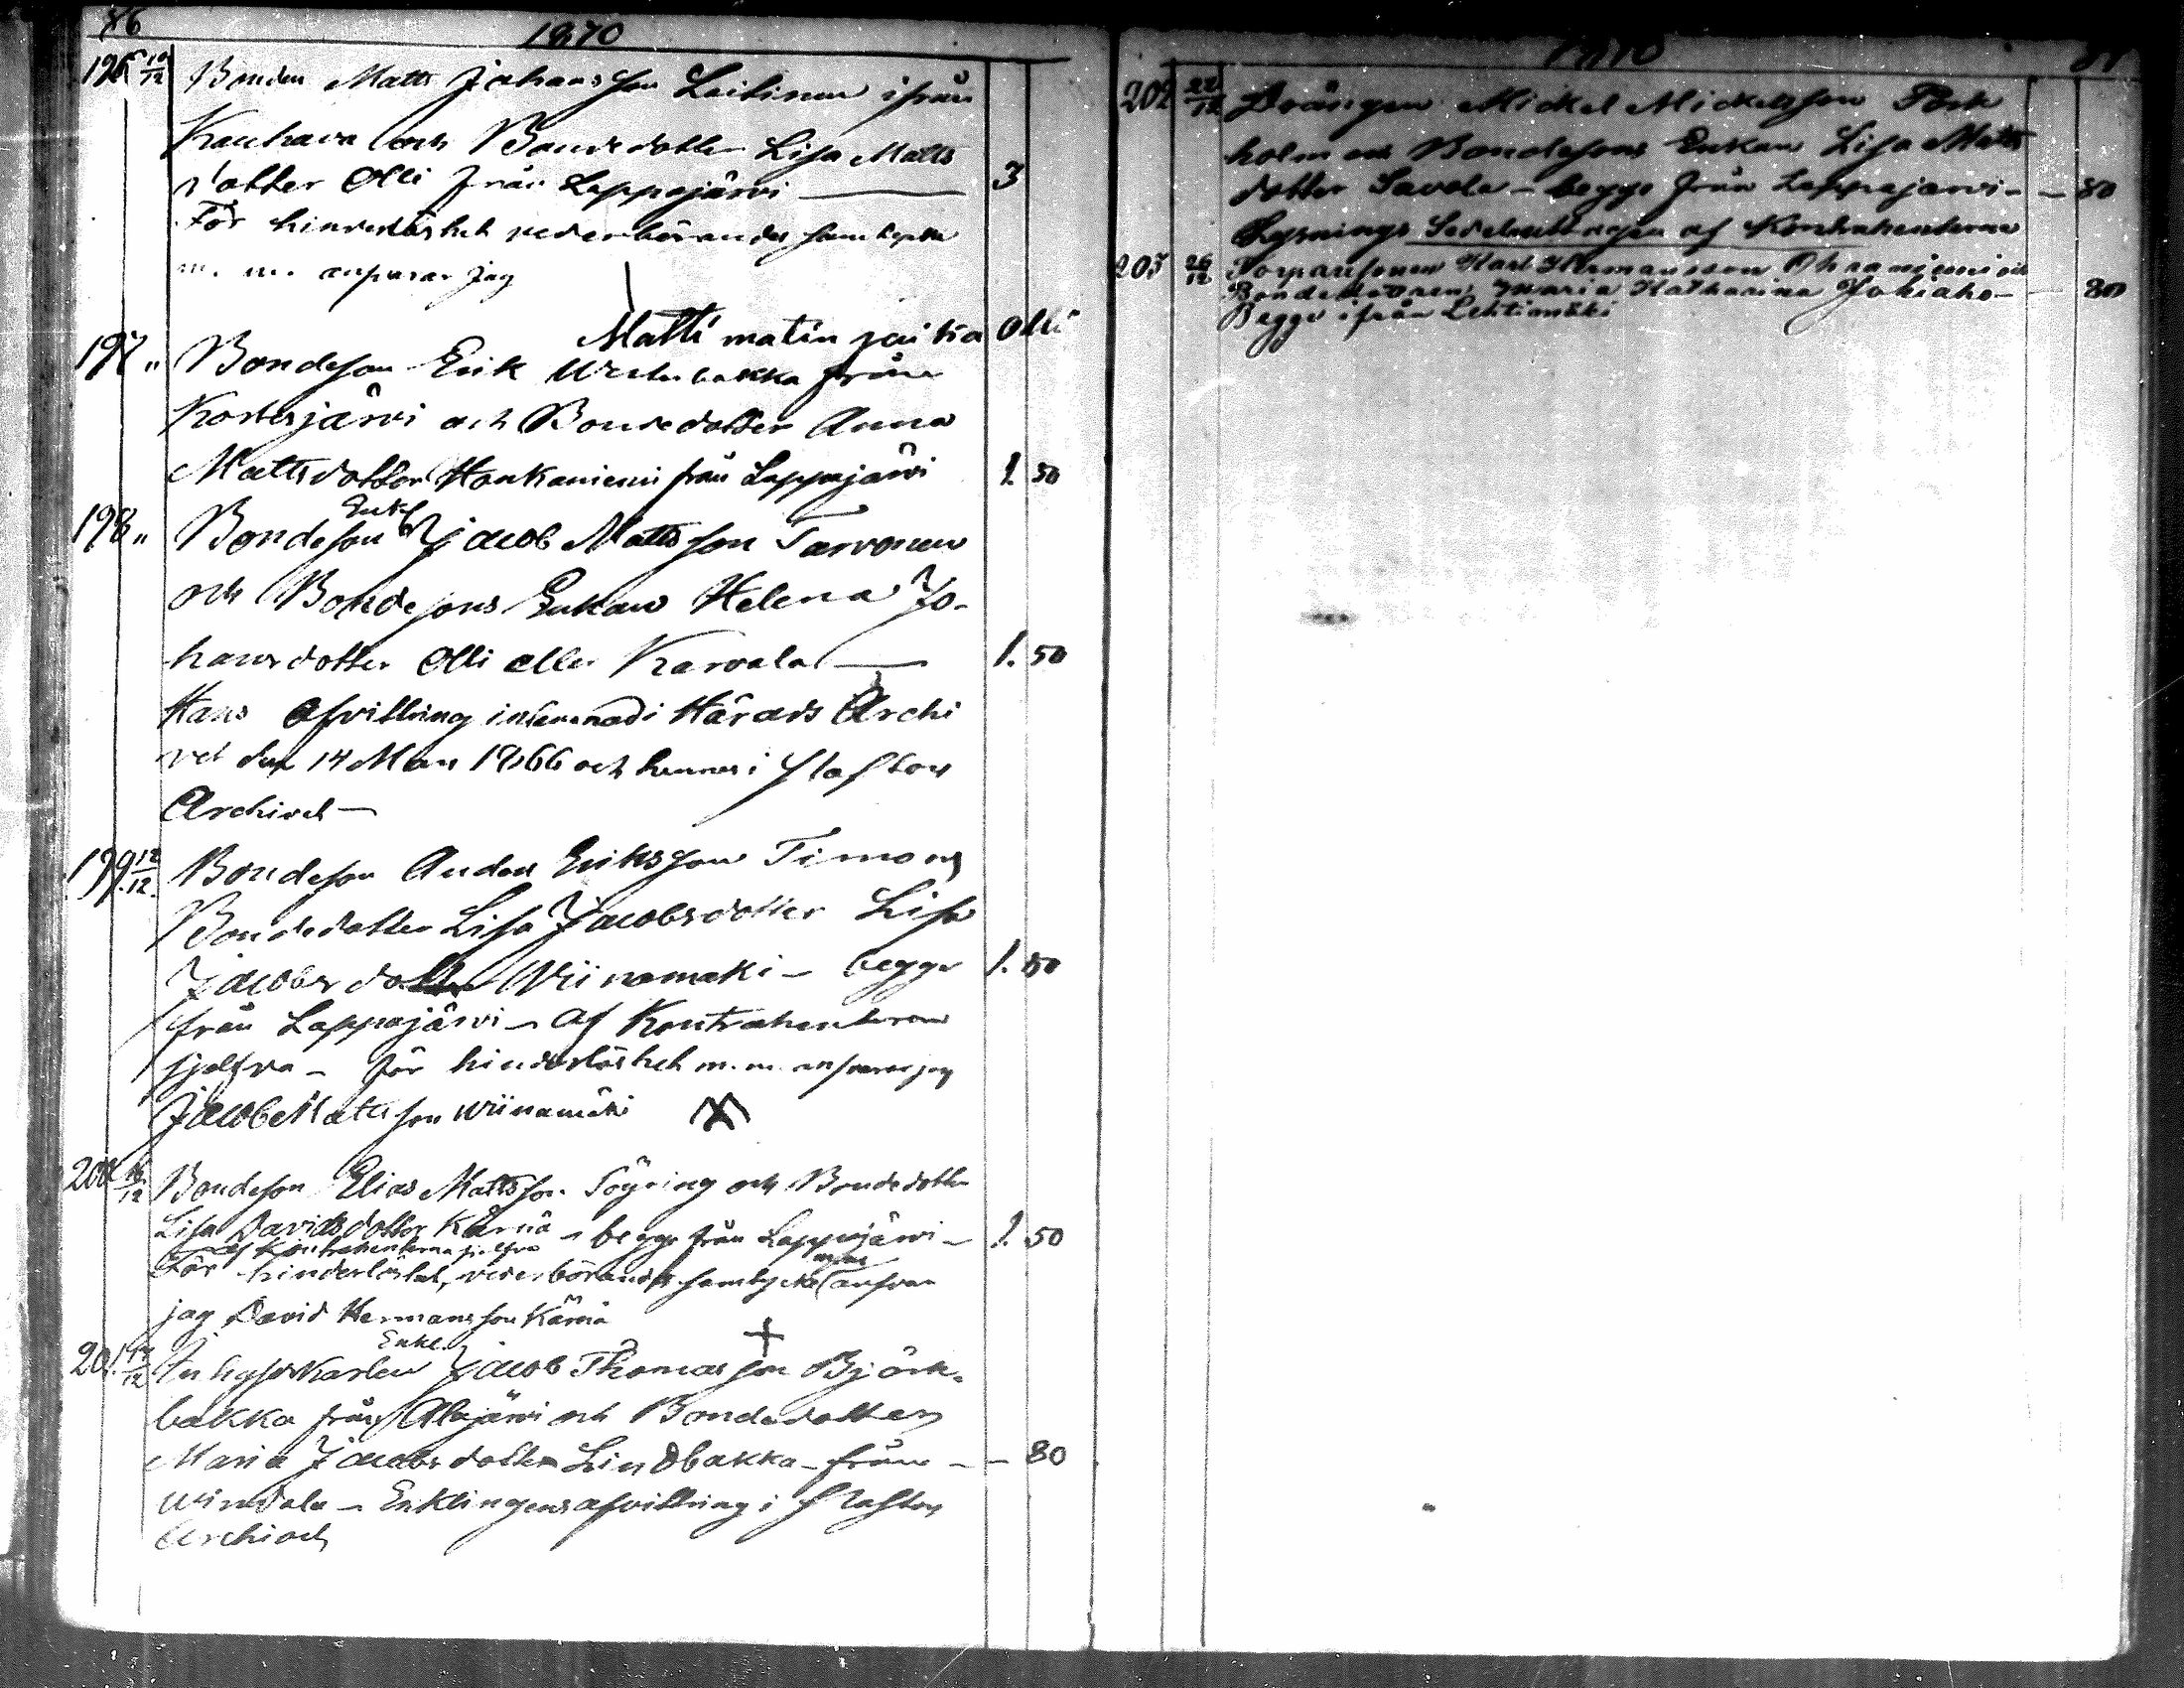 86
1870
196 10/12 Bonden Matts Johansson Leitinen ifrån
Kauhava och Bondedotter Lisa Matts
dotter Olli från Lappajärvi — 3
För hinderlöshet vederbörandes samtycke
m. m. ansvarar jag
Matti matin poika Olli
197 " Bondeson Erik Westerbakka från
Kortesjärvi och Bondedotter Anna
Mattsdotter Honkaniemi från Lappajärvi 1. 50
Enkl
198 " Bondeson Jacob Mattsson Tarvonen
och Bondesons Enkan Helena Jo-
hansdotter Olli eller Karvala — 1. 50
Hans afvittring inlemnad i Härads Archi
vet den 14 Mars 1866 och hennes i
Archivet —
199 12/12 Bondeson Anders Eriksson Timo och
Bondedotter Lisa Jacobsdotter Lisa
Jacobsdotter Wiinamäki — begge 1. 50
från Lappajärvi — af Kontrahenterna
sjelfva — för hinderlöshet m. m. ansvarar jag
Jacob Mattsson Wiinamäki
200 16/12 Bondeson Elias Mattsson Töyring och Bondedotter
Lisa Davidsdotter Kärnä — begge från Lappajärvi — 1. 50
af Kontrahenterna sjelfva
För hinderlöshet, vederbörandes samtycke ansvarar
jag David Hermansson Kärnä
Enkl.
201. 17/12 Inhyseskarlen Jacob Thomasson Björk-
bakka från Alajärvi och Bondedotter
Maria Jacobsdotter Lindbakka — från — — 80
Windala — Enklingens afvittring i
Archivet
1870
87
202 22/12 Drängen Mickel Mickelsson Pork
holm och Bondesons Enkan Lisa Matts
dotter Savola — begge från Lappajärvi — — 80
Lysnings Sedel af Kontrahenterna
203 26/12 Torparesonen Karl Hermansson och
Bondedottren Maria Katharina Jokiaho — — 80
Begge ifrån Lehtimäki